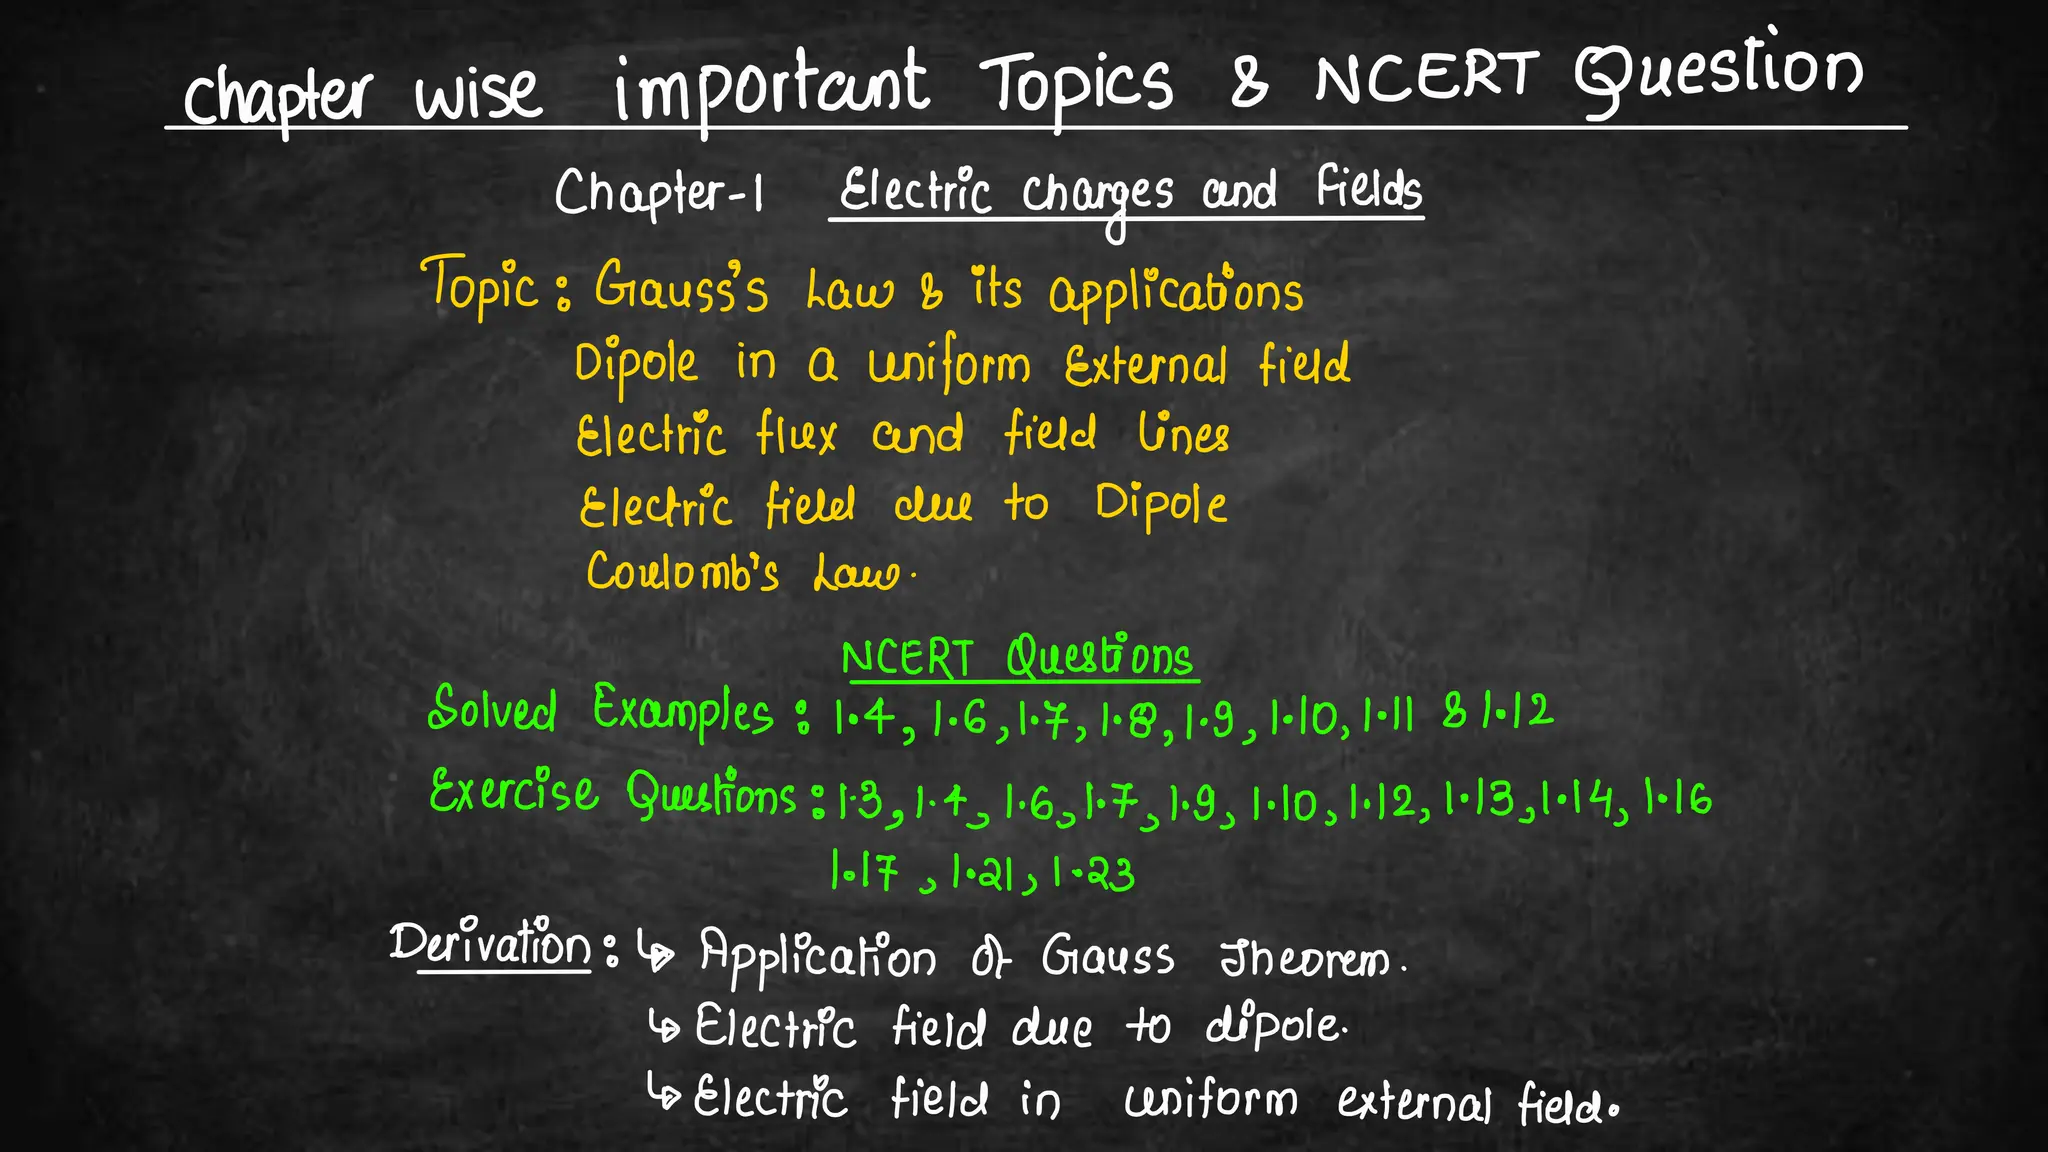 chapter wise important Topics & NCERT Question
Chapter-1 Electric charges and Fields
Topic: Gauss's Law & its applications
Dipole in a uniform External field
Electric flux and field lines
Electric field due to Dipole
Coulomb's Law.
NCERT Questions
Solved Examples: 1.4, 1.6, 1.7, 1.8, 1.9, 1.10, 1.11 & 1.12
Exercise Questions: 1.3, 1.4, 1.6, 1.7, 1.9, 1.10, 1.12, 1.13, 1.14, 1.16
1.17, 1.21, 1.23
Derivation: ↳ Application of Gauss Theorem.
↳ Electric field due to dipole.
↳ Electric field in uniform external field.